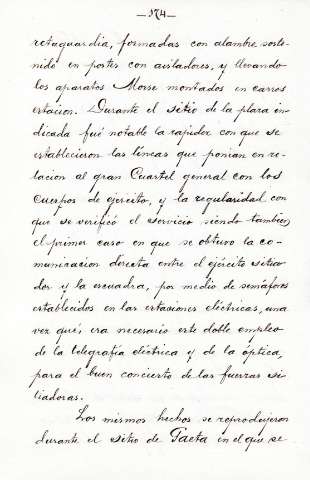 —174—
retaguardia, formadas con alambre soste-
nido en postes con aisladores, y llevando
los aparatos Morse montados en carros
estacion. Durante el sitio de la plaza in-
dicada fué notable la rapidez con que se
establecieron las líneas que ponian en re-
lacion al gran Cuartel general con los
cuerpos de ejército, y la regularidad con
que se verificó el servicio siendo tambien
el primer caso en que se obtuvo la co-
municacion directa entre el ejército sitia-
dor y la escuadra, por medio de semáforos
establecidos en las estaciones eléctricas, una
vez que era necesario este doble empleo
de la telegrafía eléctrica y de la óptica,
para el buen concierto de las fuerzas si-
tiadoras.
Los mismos hechos se reprodujeron
durante el sitio de Gaeta en el que se